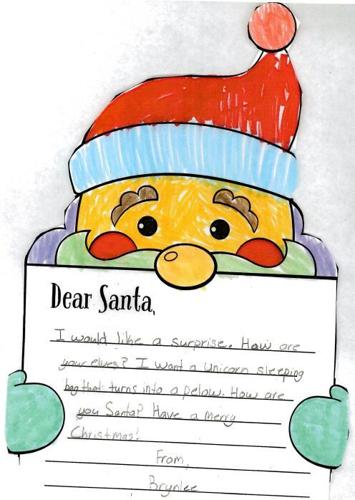 Dear Santa,
I would like a surprise. How are
your elves? I want a unicorn sleeping
bag that turns into a pelow. How are
you Santa? Have a merry
Christmas!
From,
Brynlee